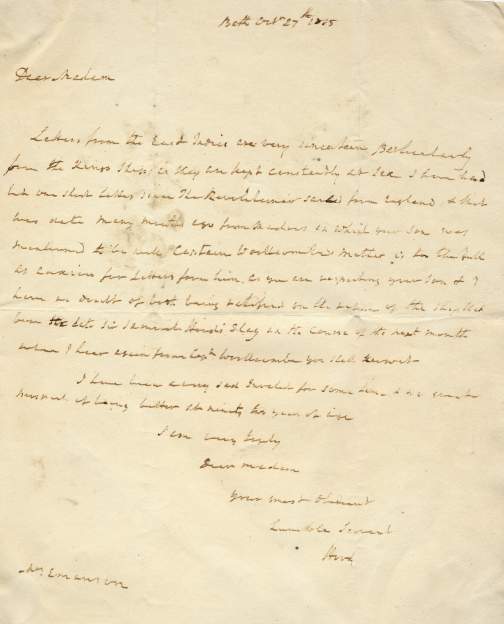 Bath Octr 27th 1815
Dear Madam
Letters from the East Indies are very uncertain particularly
from the Kings Ships as they are kept constantly at Sea I have had
but one short letter since the sailed from England, & that
was date many months ago from Madras in which your Son was
mentioned to be well Captain Wolcombe's Mother is to the full
as anxious for letters from him, as you are respecting your Son & I
have no doubt of both being satisfied on the return of the Ships that
bore the late Sir Samuel Hood's Flag in the course of the next month
when I hear again from Capt Wolcombe you shall know it
I have been a very sad Invalid for some time & no great
prospect of being better at ninety two years of age
I am very truly
Dear Madam
Your most Obedient
humble Servant
Hood
Mrs Emerson